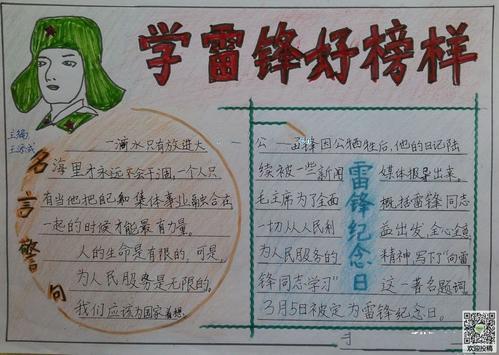 学雷锋好榜样
主编:
名言警句
一滴水只有放进大
海里才永远不会干涸,一个人只
有当他把自己和集体事业融合在
一起的时候才能最有力量。
人的生命是有限的,可是,
为人民服务是无限的,
我们应该为国家着想。
雷锋纪念日
雷锋因公牺牲后,他的日记陆
续被一些新闻媒体报导出来。
毛主席为了全面概括雷锋同志
一切从人民利益出发,全心全意
为人民服务的精神,写下了“向雷
锋同志学习”这一著名题词。
3月5日被定为雷锋纪念日。
欢迎投稿